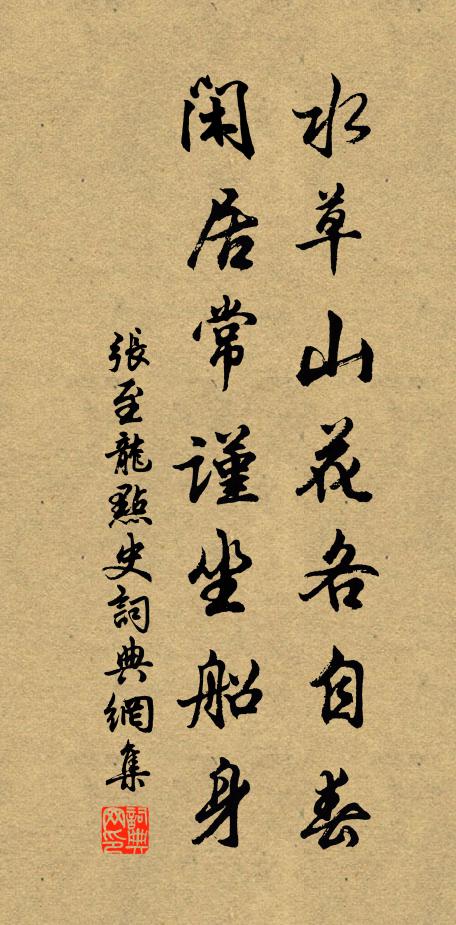 水草山花各自春
閑居常謹坐船身
張至龍點史詞典網集
詞典
网印